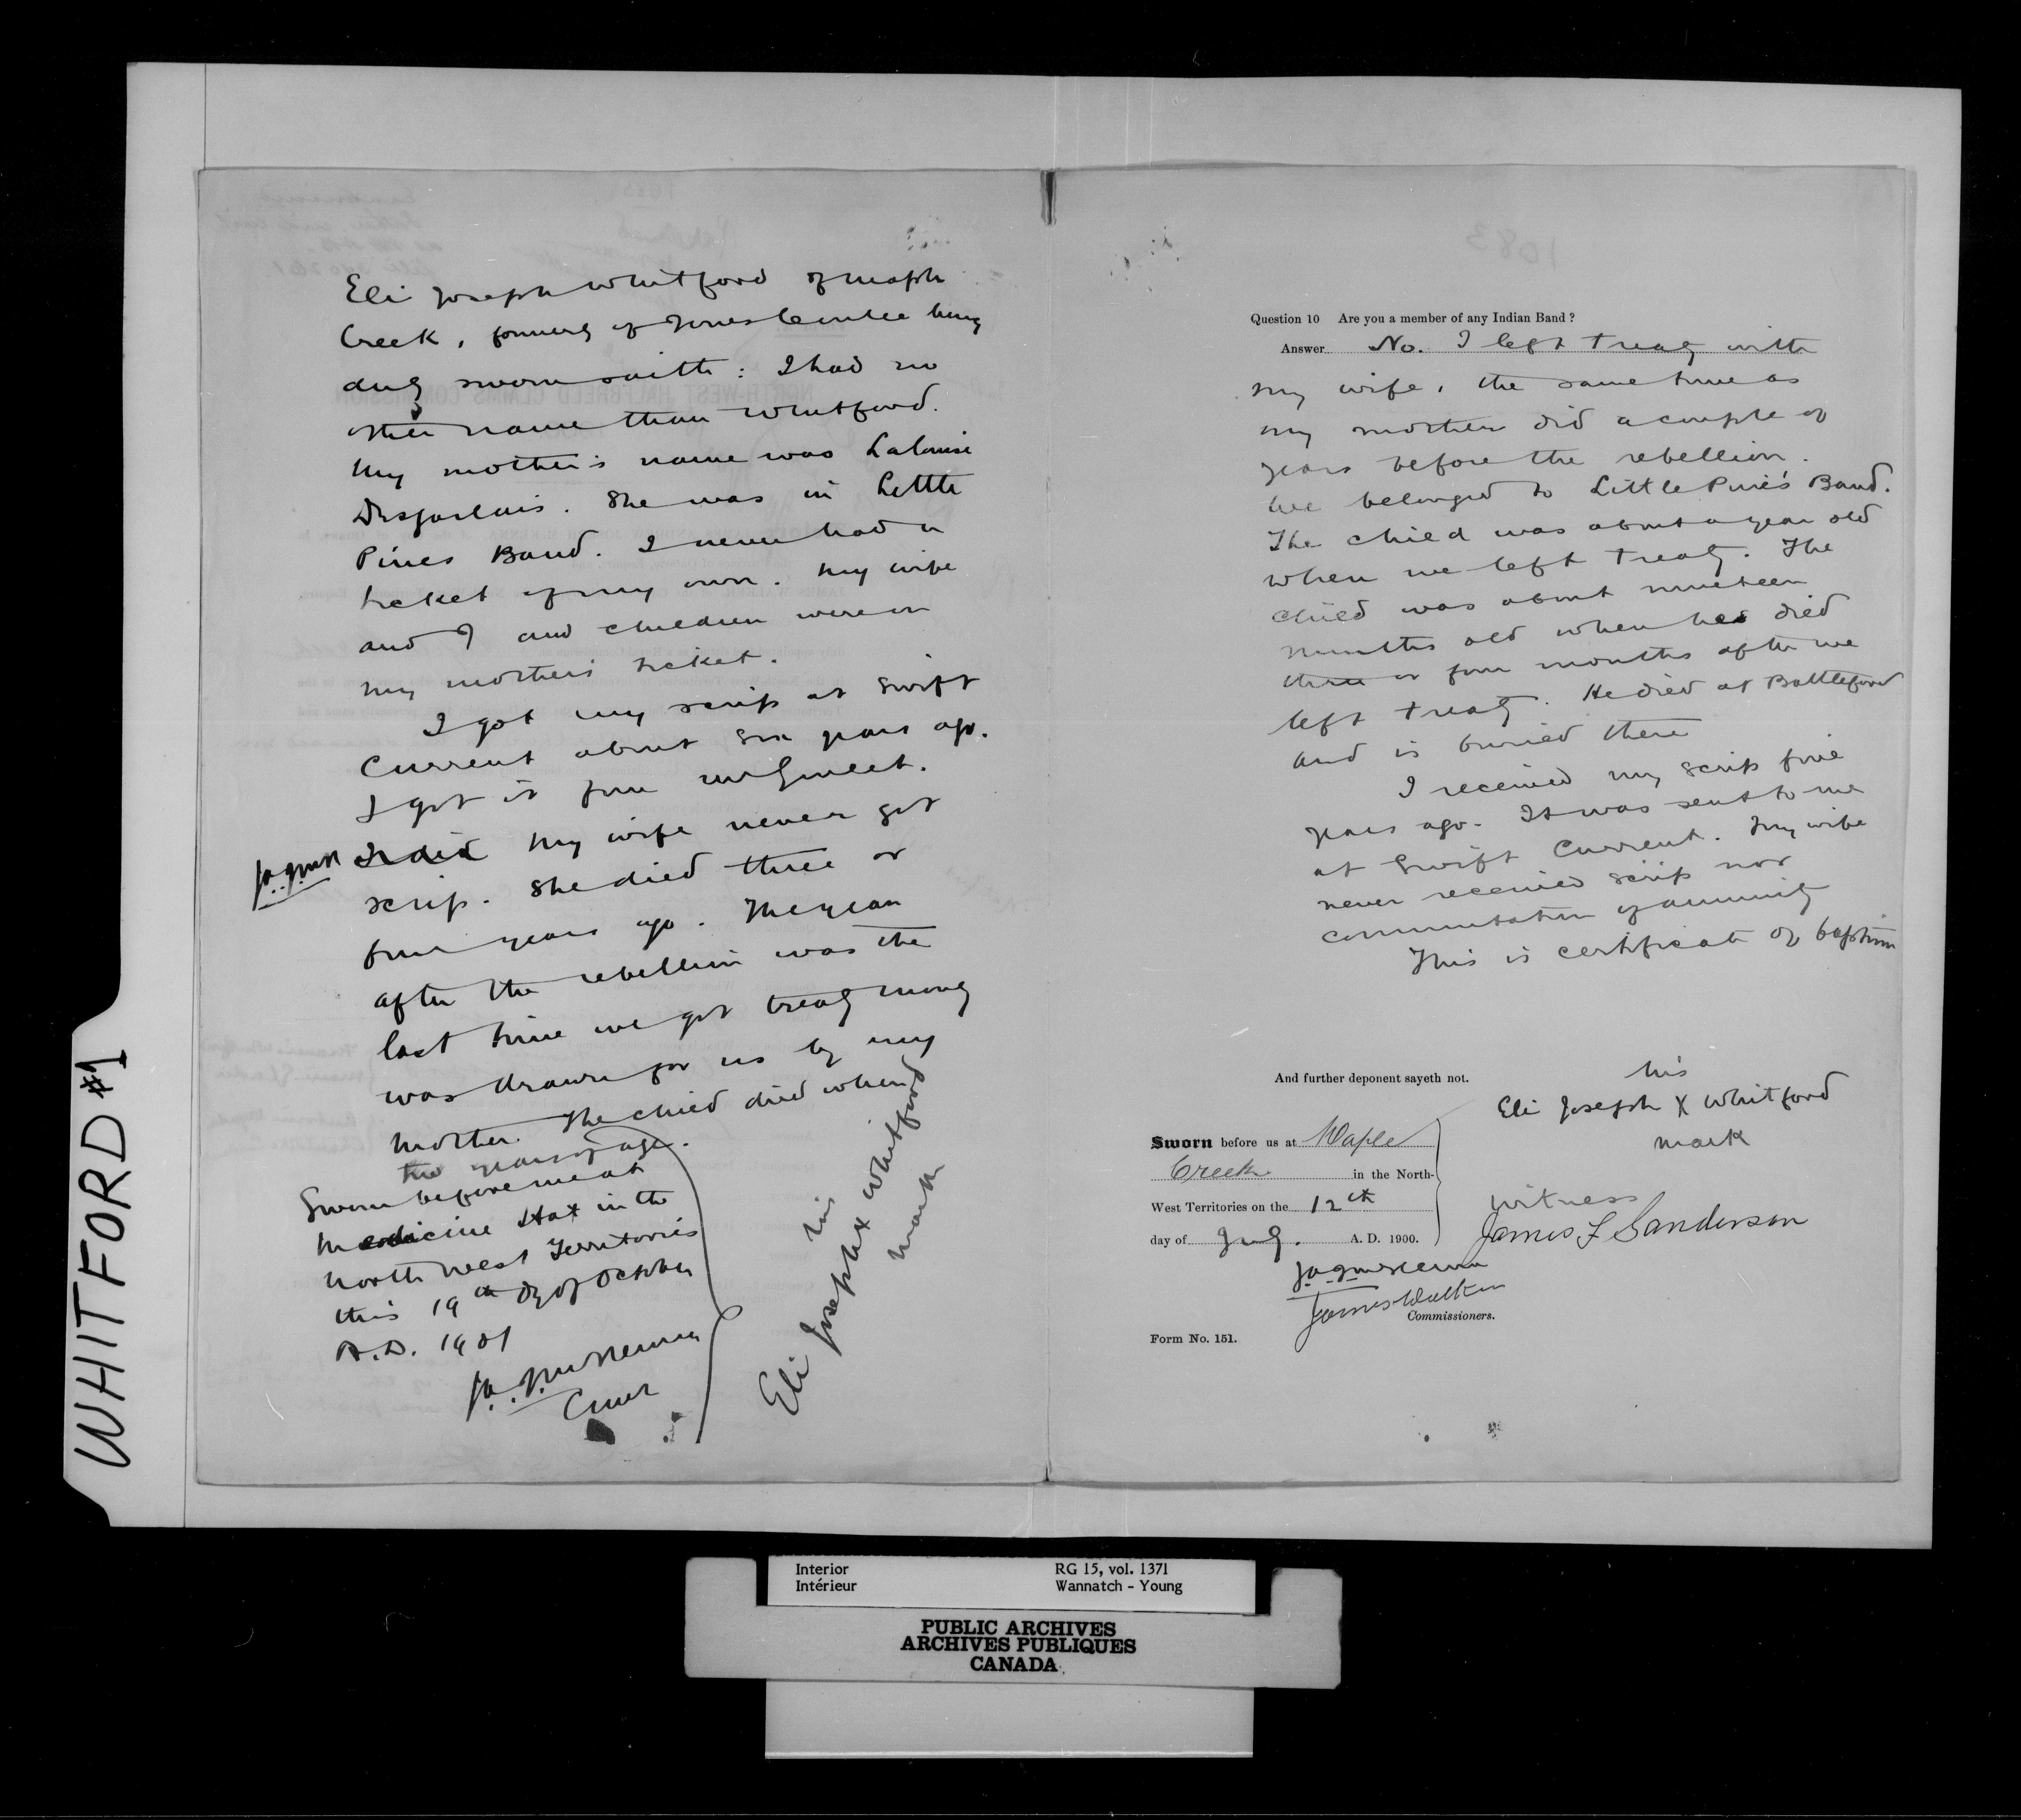 Eli Joseph Whitford of Maple
Creek, formerly of Jones Coulee being
duly sworn saith : I had no
other name than Whitford.
My mother's name was Lalouise
Desjarlais. She was in Little
Pines Band. I never had a
ticket of my own. My wife
and I and children were on
my mothers ticket.
I got my scrip at Swift
Current about six years ago.
I got it from
I did My wife never got
scrip. She died three or
four years ago. The year
after the rebellion was the
last time we got treaty money
was drawn for us by my
mother. The child died when
two years of age.
Sworn before me at
Medicine Hat in the
North West Territories
this 19th day of October
A.D. 1901
J.A.J. McKenna
Cmr
his
Eli Joseph x Whitford
mark
Question 10 Are you a member of any Indian Band ?
Answer No. I left treaty with
my wife, the same time as
my mother did a couple of
years before the rebellion.
We belonged to Little Pine's Band.
The child was about a year old
when we left treaty. The
child was about nineteen
months old when he died
three or four months after we
left treaty. He died at Battleford
and is buried there
I received my scrip five
years ago. It was sent to me
at Swift Current. My wife
never received scrip nor
commutation of annuity
This is certificate of baptism
And further deponent sayeth not.
his
Eli Joseph X Whitford
mark
Sworn before us at Maple
Creek in the North-
West Territories on the 12th
day of July. A. D. 1900.
witness
James F Sanderson
J.A.J. McKenna
James Walker
Commissioners.
Form No. 151.
WHITFORD #1
Interior RG 15, vol. 1371
Intérieur Wannatch - Young
PUBLIC ARCHIVES
ARCHIVES PUBLIQUES
CANADA